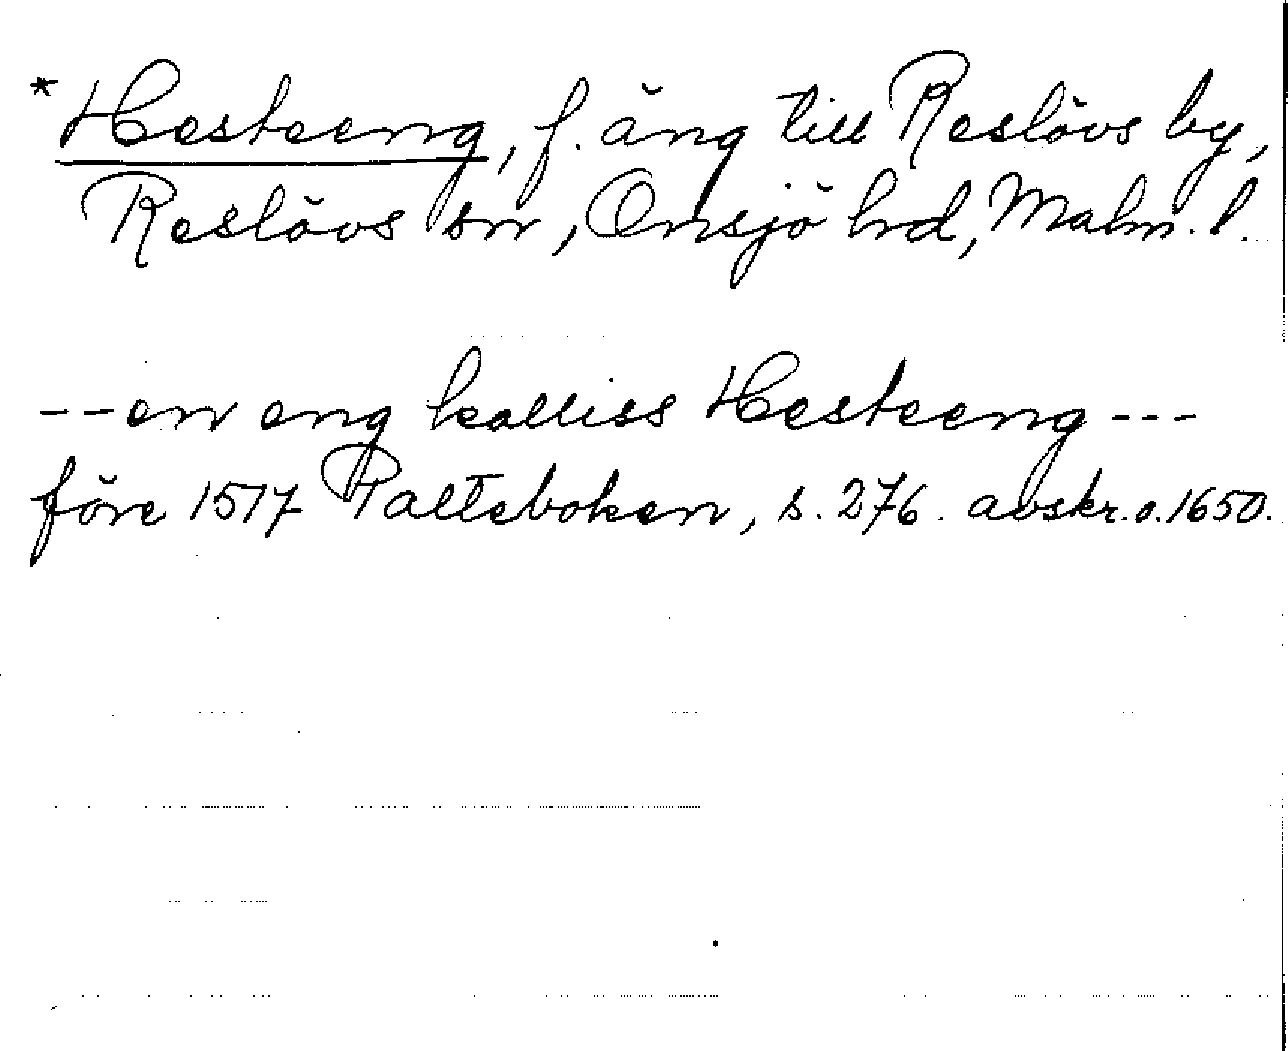 *Hesteeng, f. äng till Reslövs by,
Reslövs sn, Onsjö hd, Malm. l.
--en eng kalliss Hesteeng---
före 1517 Palteboken, s. 276. avskr. o. 1650.